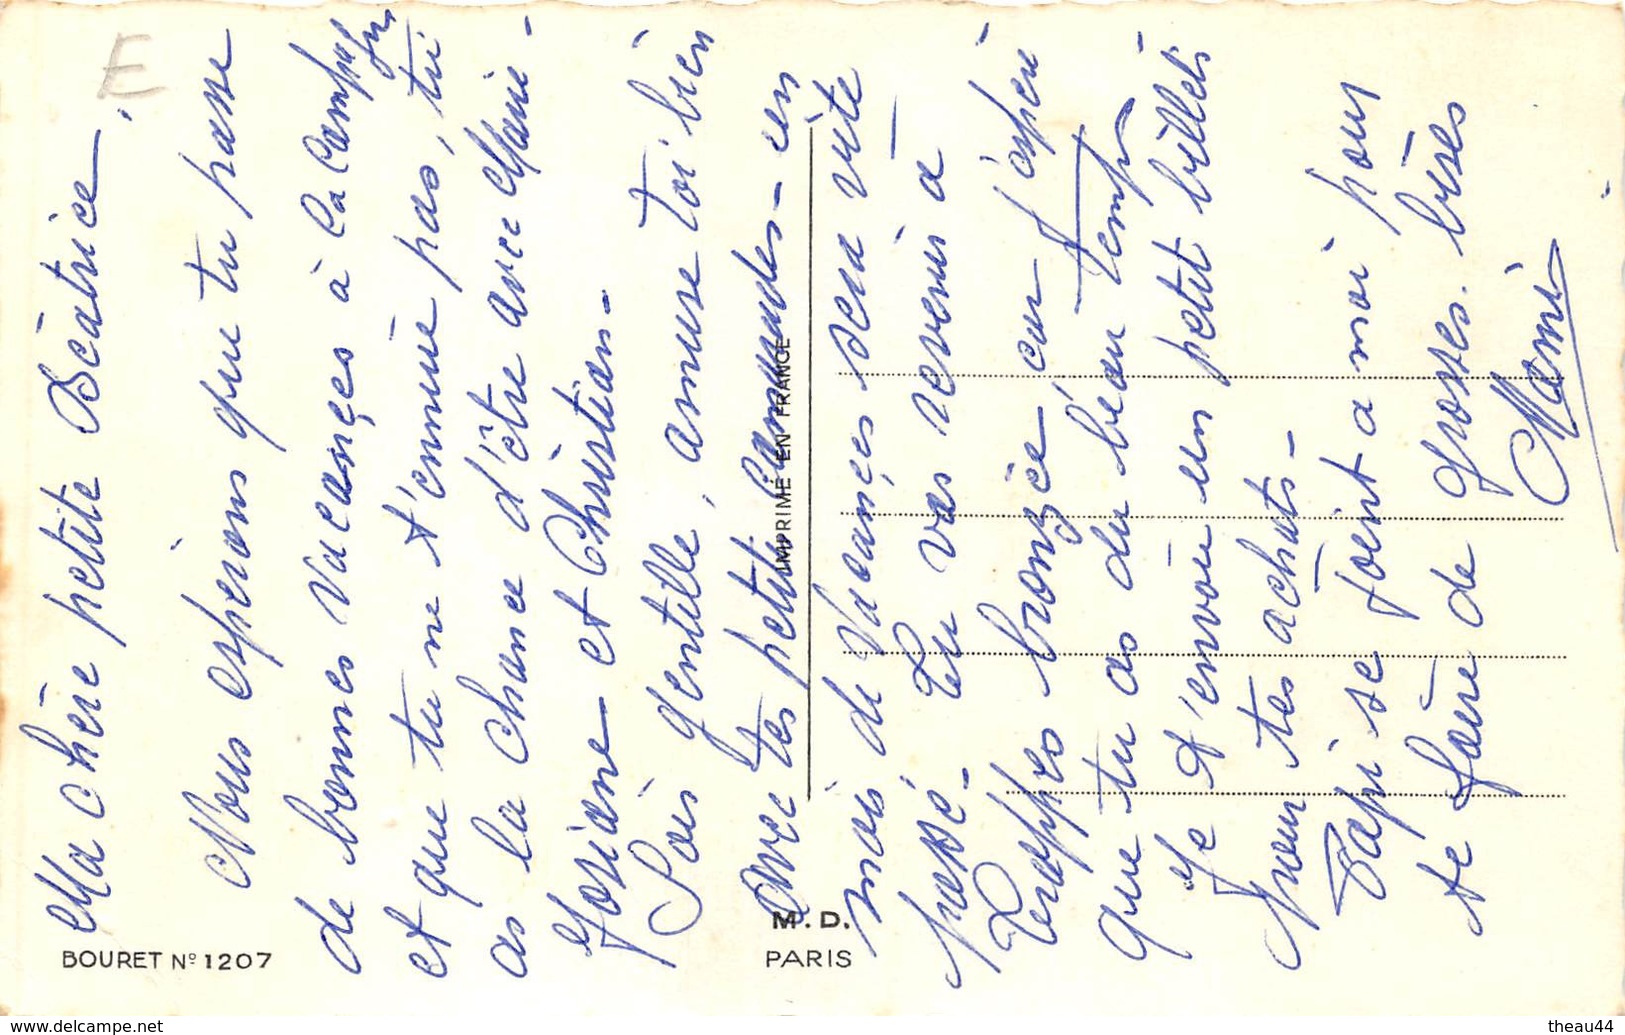 Ma chère petite Béatrice,
Nous espérons que tu passe
de bonnes Vacançes à la Campagne
et que tu ne t'ennuie pas, tu
as la chance d'être avec Marie-
Josiane et Christian-
Sois gentille, amuse toi bien
avec tes petits Camarades- un
mois de Vacançes sera vite
passé- Tu vas revenir à
Bronzée- car j'espère
que tu as du beau temps
Je t'envoie un petit billet
pour tes achats-
Papi se joint a moi pour
te faire de grosses bises
Mami
E
BOURET Nº 1207
M. D.
PARIS
IMPRIMÉ EN FRANCE
www.delcampe.net
theau44